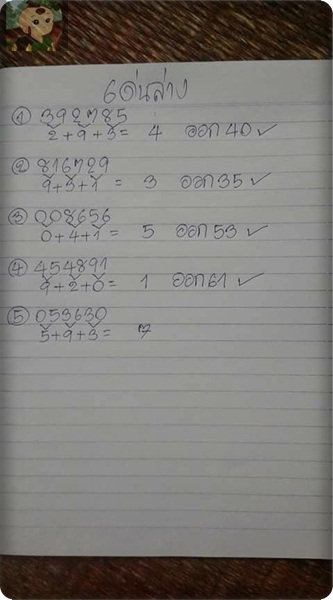 เด่นล่าง
① 392785
2+9+3= 4 ออก 40 ✓
② 816729
9+3+1 = 3 ออก 35 ✓
③ 008656
0+4+1= 5 ออก 53 ✓
④ 454891
9+2+0= 1 ออก 61 ✓
⑤ 053630
5+9+3= 7